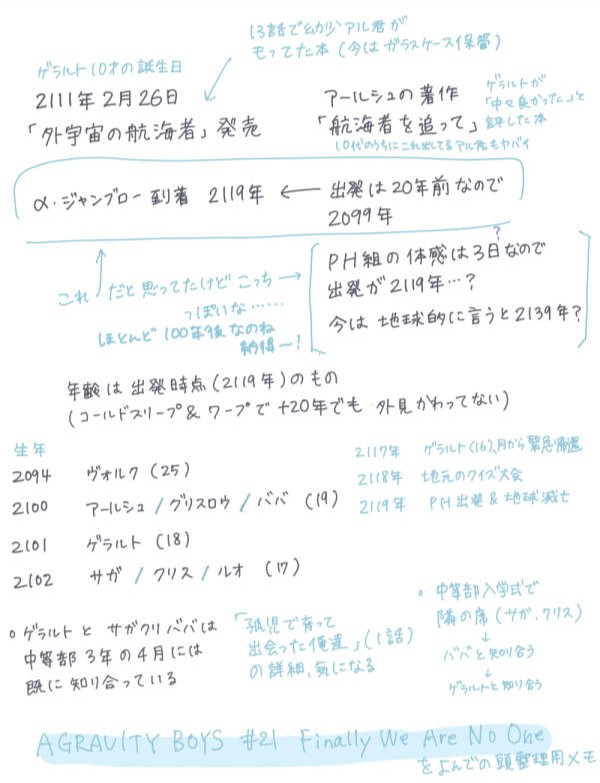 13話で幼少アル君が
もってた本(今はガラスケース保管)
ゲラルト10才の誕生日
2111年2月26日
「外宇宙の航海者」発売
アールシュの著作
「航海者を追って」
ゲラルトが
「中々良かった」と
評した本
10代のうちにこれ出してるアル君もヤバイ
α・ジャンブロー到着 2119年 ← 出発は20年前なので
2099年
これ
だと思ってたけどこっち →
っぽいな……
ほとんど100年後なのね
納得〜!
?
PH組の体感は3日なので
出発が2119年…?
今は地球的に言うと2139年?
年齢は出発時点(2119年)のもの
(コールドスリープ&ワープで+20年でも外見かわってない)
生年
2094 ヴォルク(25)
2100 アールシュ/グリスロウ/ババ(19)
2101 ゲラルト(18)
2102 サガ/クリス/ルオ(17)
2117年 ゲラルト(16)、月から緊急帰還
2118年 地元のクイズ大会
2119年 PH出発&地球滅亡
○ゲラルトとサガクリババは
中等部3年の4月には
既に知り合っている
「孤児で育って
出会った俺達」(1話)
の詳細、気になる
○中等部入学式で
隣の席(サガ、クリス)
↓
ババと知り合う
↓
ゲラルトと知り合う
AGRAVITY BOYS #21 Finally We Are No One
をよんでの頭整理用メモ